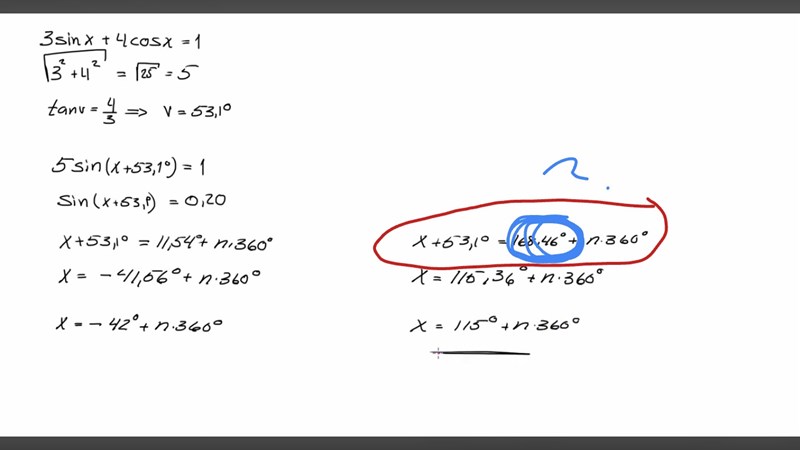 3sinx + 4cosx = 1
√3² + 4² = √25 = 5
tanv = 4/3 ⇒ v = 53,1°
5sin(x+53,1°) = 1
sin(x+53,1°) = 0,20
x+53,1° = 11,54° + n·360°
x = -41,56° + n·360°
x = -42° + n·360°
x+53,1° = 168,46° + n·360°
x = 115,36° + n·360°
x = 115° + n·360°